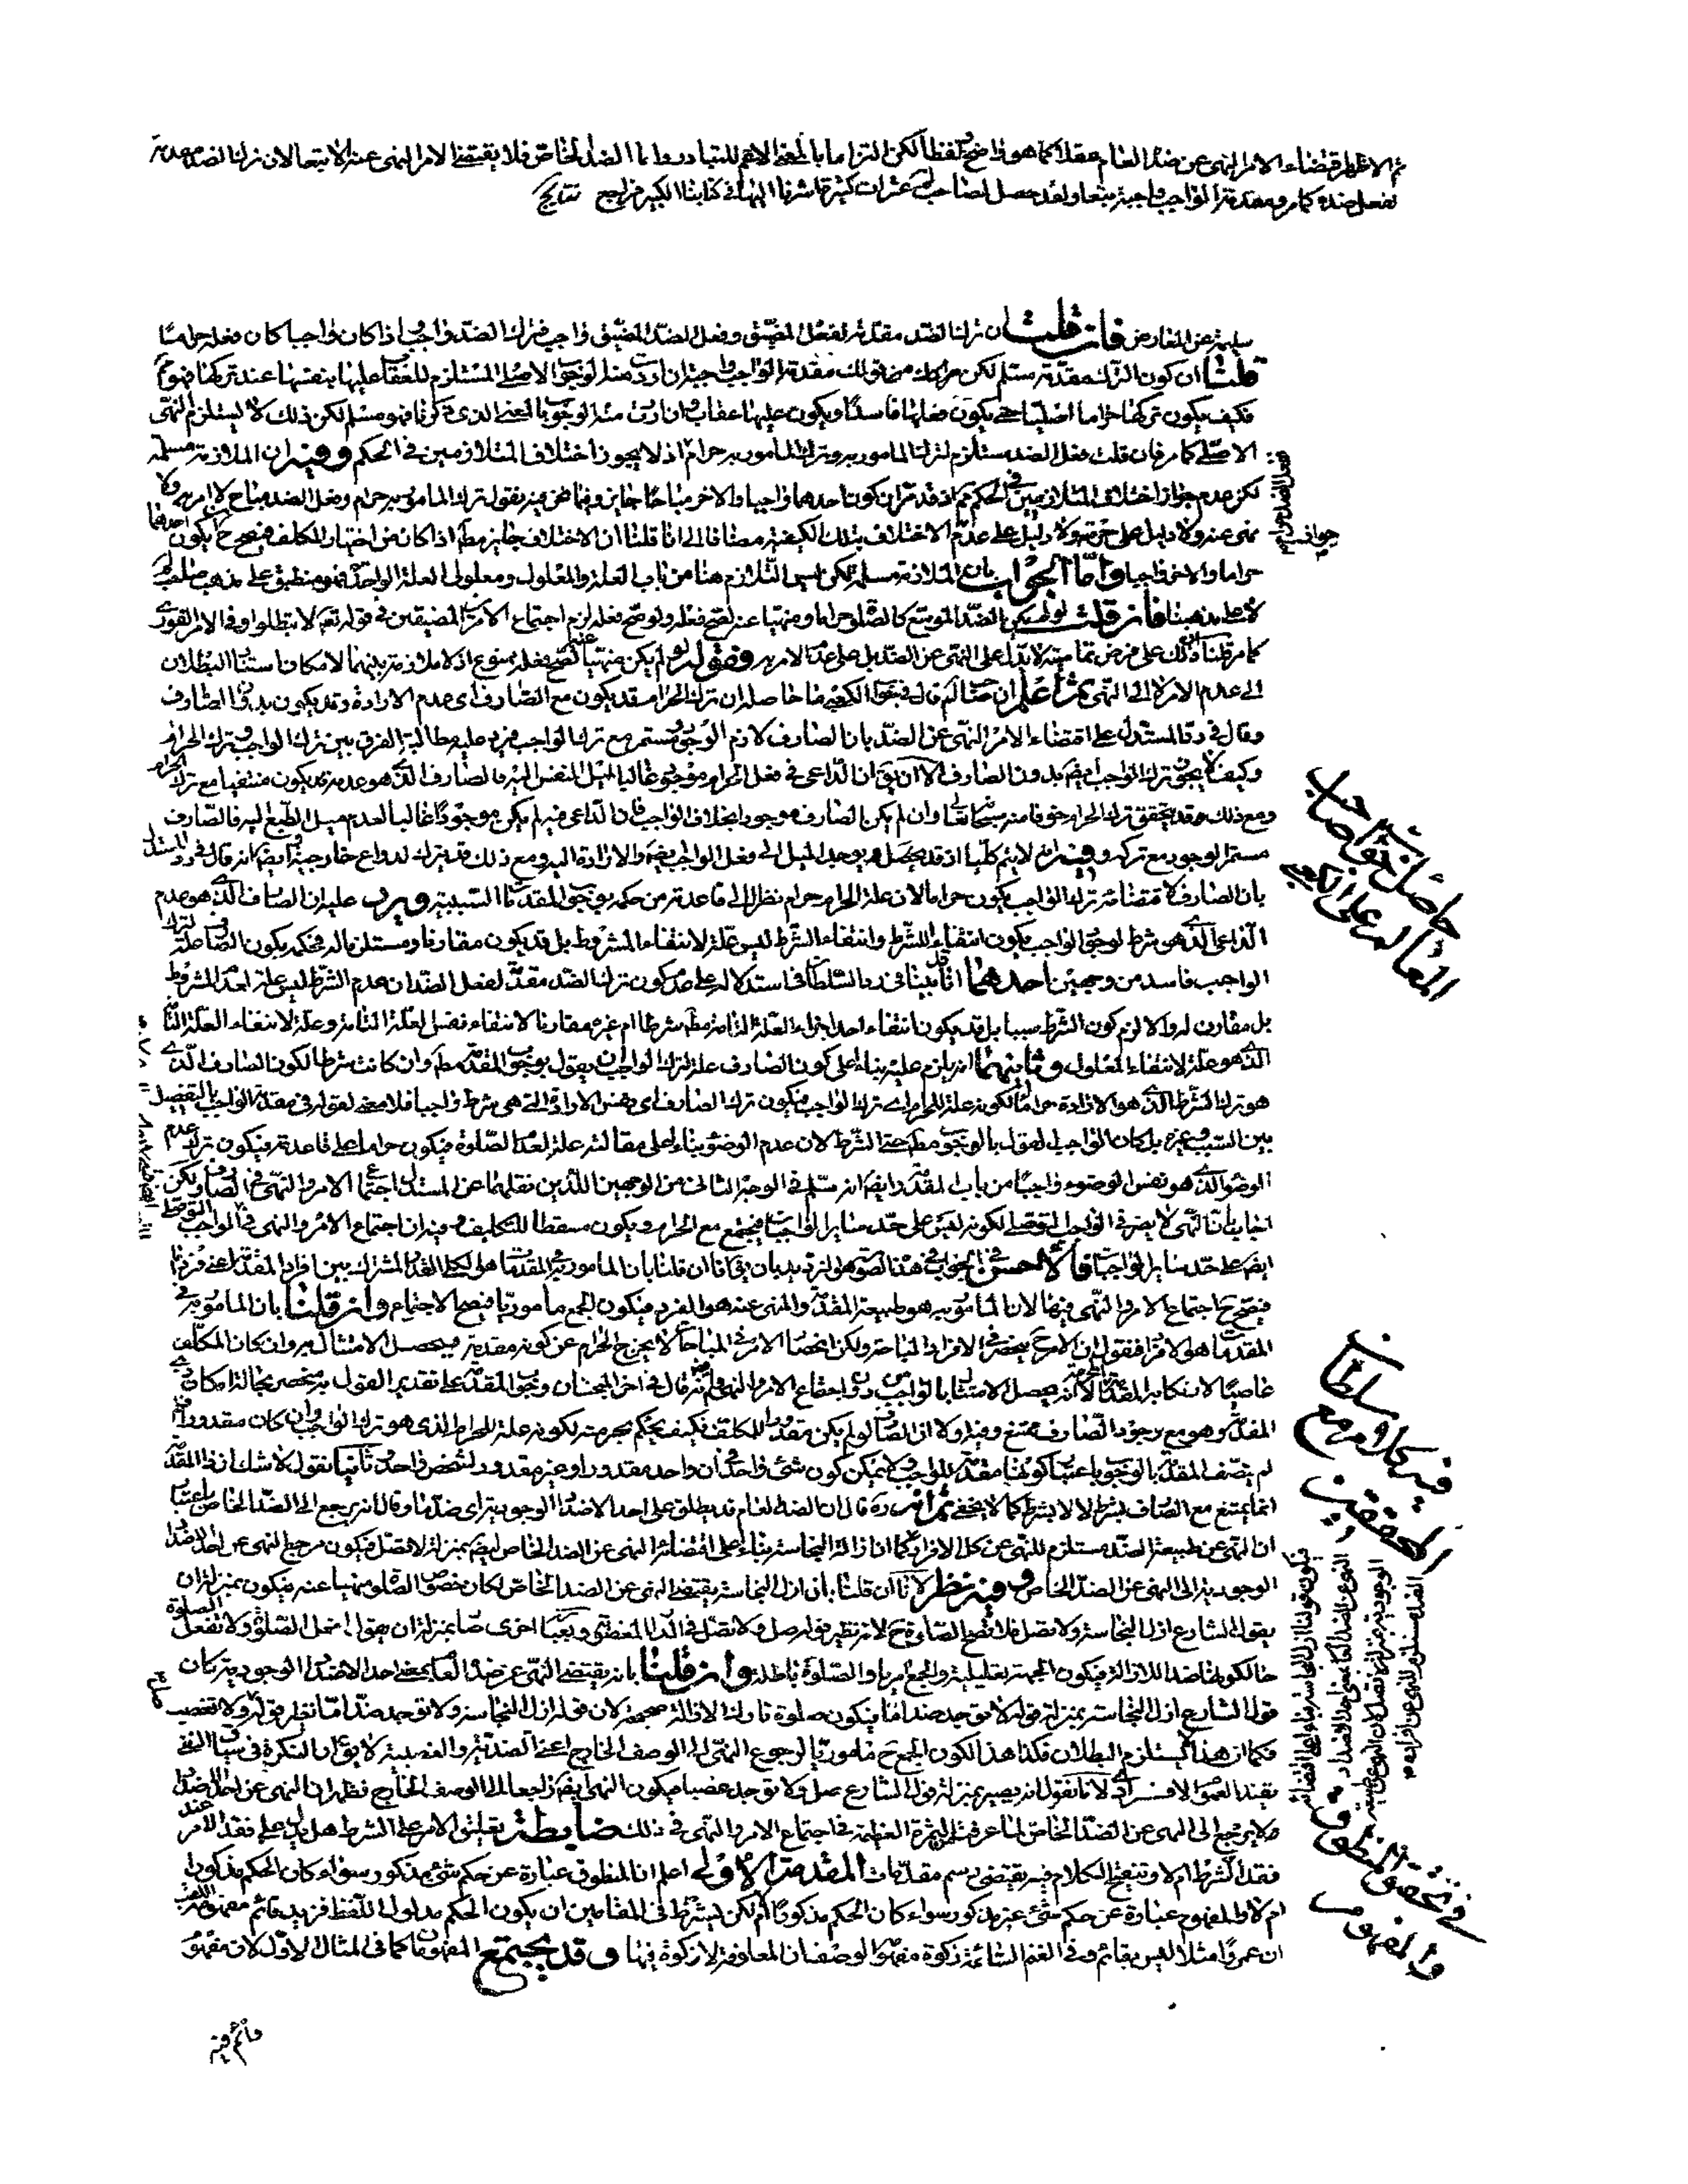 ثم الاظهر اقتضاء الامر النهى عن ضد العام عقلا كما هو واضح لفظا لكن التزاما بالمعنى الاعم للتبادر واما الضد الخاص فلا يقتضى الامر النهى عنه الا تبعا لان ترك الضد مقدمة
لفعل ضده كما مر ومقدمة الواجب واجبة تبعا ولقد حصل لصاحب عثرات كثيرة اشرنا اليها فى كتابنا الكبير من راجع نتايج
سليمة عن المعارض فان قلت ان ترك الضد مقدمة لفعل المضيق وفعل الضد المضيق واجب فترك الضد واجب واذا كان واجبا كان فعله حراما
قلنا ان كون الترك مقدمة مسلم لكن مقدمة الواجب واجبة ان اردت منه الوجوب الاصلى المستلزم للعقاب عليها بنفسها عند تركها فهو مم
فكيف يكون تركها حراما اصليا حتى يكون فعلها فاسدا ويكون عليها عقاب وان اردت منه الوجوب بالمعنى الذى ذكرنا فهو مسلم لكن ذلك لا يستلزم النهى
الاصلى كما مر فان قلت فعل الضد مستلزم لترك المامور به وترك المامور به حرام اذ لا يجوز اختلاف المتلازمين فى الحكم وفيه ان الملازمة مسلمة
لكن عدم جواز اختلاف المتلازمين فى الحكم مم اذ قد مر ان كون احدهما واجبا والاخر مباحا جايز وفيما نحن فيه نقول ترك المامور به حرام وفعل الضد مباح لا امر به ولا
نهى عنه ولا دليل على حرمته ولا دليل على عدم الاختلاف بتلك الكيفية مضافا الى انا قلنا ان الاختلاف جايز مط اذا كان من اختيار المكلف فيصح ح ان يكون احدهما
حراما والاخر واجبا واما الجواب بان الملازمة مسلمة لكن ليس التلازم هنا من باب العلة والمعلول ومعلولى العلة الواحدة فهو منطبق على مذهب صاحب لم
لا على مذهبنا فان قلت لو لم يكن الضد الموسع كالصلوة حراما ومنهيا عنه لصح فعله ولو صح فعله لزم اجتماع الامرين المضيقين
كما مر قلنا ذلك على فرض تماميته لا يدل على النهى عن الضد بل على عدم الامر به وقوله لو لم يكن منهيا عنه لصح فعله ممنوع اذ لا ملازمة بينهما لامكان استناد البطلان
الى عدم الامر لا الى النهى ثم اعلم ان صاحب لم قال فى جواب الكعبى ما حاصله ان ترك الحرام قد يكون مع الصارف اى عدم الارادة وقد يكون بدون الصارف
وقال فى رد المستدل على اقتضاء الامر النهى عن الضد بان الصارف لازم الوجود مستمر مع ترك الواجب فيرد عليه مطالبة الفرق بين ترك الواجب وترك الحرام
وكيف لا يجوز ترك الواجب ايضا بدون الصارف الا ان يق ان الداعى فى فعل الحرام موجود غالبا لميل النفس اليه فالصارف الذى هو عدمه قد يكون منتفيا مع ترك الحرام
ومع ذلك فقد يتحقق ترك الحرام خوفا منه سبحانه تعالى وان لم يكن الصارف موجودا بخلاف الواجب فان الداعى فيه لم يكن موجودا غالبا لعدم ميل الطبع اليه فالصارف
مستمر الوجود مع تركه وفيه انه لا يتم كليا اذ قد يحصل ويوجد الميل الى فعل الواجب ايضا والارادة اليه ومع ذلك قد يترك لدواع خارجية ايضا انه قال فى رد المستدل
بان الصارف لاقتضائه ترك الواجب يكون حراما لان علة الحرام حرام نظرا الى قاعدته من حكمه بوجوب المقدمات السببية ويرد عليه ان الصارف الذى هو عدم
الداعى الذى هو شرط لوجود الواجب يكون انتفاء للشرط وانتفاء الشرط ليس علة لانتفاء المشروط بل قد يكون مقارنا ومستلزما له فحكمه بكون الصارف علة لترك
الواجب فاسد من وجهين احدهما انا قد بينا فى رد السلطان فى استدلاله على عدم كون ترك الضد مقدمة لفعل الضد ان عدم الشرط ليس علة لعدم المشروط
بل مقارن له والا لزم كون الشرط سببا بل قد يكون انتفاء احد اجزاء العلة التامة مط شرطا ام غيره مقارنا لانتفاء نفس العلة التامة وعلة لانتفاء العلة التامة
الذى هو علة لانتفاء المعلول وثانيهما انه يلزم عليه بناء على كون الصارف علة لترك الواجب ان يقول بوجوب المقدمة مط وان كانت شرطا لكون الصارف الذى
هو ترك الشرط الذى هو الارادة حراما لكونه علة للحرام اى ترك الواجب فيكون ترك الصارف اى نفس الارادة التى هى شرط واجبا فلا معنى لقوله فى مقدمة الواجب بالتفصيل
بين السبب وغيره بل كان الواجب القول بالوجوب مط حتى الشرط لان عدم الوضوء بناء على مقالته علة لعدم الصلوة فيكون حراما على قاعدته فيكون ترك عدم
الوضوء الذى هو نفس الوضوء واجبا من باب المقدمة وايضا انه سلم فى الوجه الثانى من الوجهين اللذين نقلهما عن المستدل اجتماع الامر والنهى فى الصارف ولكن
اجاب بان النهى لا يضر فى الواجب التوصلى لكونه ليس على حد ساير الواجبات فيجتمع مع الحرام ويكون مسقطا للتكليف وفيه ان اجتماع الامر والنهى فى الواجب التوصلى
ايضا على حد ساير الواجبات فالاحسن فى الجواب فى هذا المقام هو الترديد بان يق انا ان قلنا بان المامور به فى المقدمات هو الكلى القدر المشترك بين افراد المقدمة
فيصح ح اجتماع الامر والنهى فيها لان المامور به هو طبيعة المقدمة والمنهى عنه هو الفرد فيكون الجمع مامورىا فيصح الاجتماع وان قلنا بان المامور به فى
المقدمات هو الافراد فنقول ان الامر ح ينحصر فى الافراد المباحة ولكن انحصار الامر فى المباحات لا يخرج الحرام عن كونه مقدمة فيحصل الامتثال به وان كان المكلف
عاصيا لارتكابه المقدمة المحرمة لانه يحصل الامتثال بالواجب من دون اجتماع الامر والنهى ثم انه قال فى اخر المبحث ان وجوب المقدمة على تقدير القول به منحصر بحالة امكان ذى
المقدمة وهو مع وجود الصارف ممتنع وفيه اولا ان الصارف لو لم يكن مقدورا للمكلف فكيف يحكم بحرمته لكونه علة للحرام الذى هو ترك الواجب وان كان مقدورا فلم
لم يتصف المقدمة بالوجوب باعتبار كونها مقدمة للواجب ولا يمكن كون شىء واحد فى ان واحد مقدورا وغير مقدور لشخص واحد وثانيا نقول لا شك ان ذا المقدمة
انما يمتنع مع الصارف بشرط لا لا بشرط كما لا يخفى ثم انه ره قال ان الضد العام قد يطلق على احد الاضداد الوجودية اى ضد ما وقال انه يرجع الى الضد الخاص باعتبار
ان النهى عن طبيعة الضد مستلزم للنهى عن كل الافراد كما ان ازالة النجاسة بناء على اقتضائها النهى عن الضد الخاص ايضا بمنزلة لا تصل فيكون مرجع النهى عن احد الاضداد
الوجودية الى النهى عن الضد الخاص وفيه نظر لانا ان قلنا بان ازل النجاسة يقتضى النهى عن الضد الخاص لكان خصوص الصلوة منهيا عنه فيكون بمنزلة ان
يقول الشارع ازل النجاسة ولا تصل فلا تصح الصلوة ح لانه نظير قوله صل ولا تصل فى الدار المغصوبة وبعبارة اخرى صار بمنزلة ان يقول افعل الصلوة ولا تفعل الصلوة
حالكونها ضدا للازالة فيكون الجهة تعليلية والجمع امريا والصلوة باطلة وان قلنا بانه يقتضى النهى عن ضد العام بمعنى احد الاضداد الوجودية كان
قول الشارع ازل النجاسة بمنزلة قوله لا توجد ضدا ما فيكون صلوة تارك الازالة صحيحة لان قوله ازل النجاسة ولا توجد ضدا ما نظير قوله صل ولا تغصب
فكما ان هذا لا يستلزم البطلان فكذا هذا لكون الجمع ح مامورىا لرجوع النهى الى الوصف الخارج اعنى الضدية والغصبية لا يق ان النكرة فى سياق النفى
يفيد العموم الافرادى لانا نقول انه يصير بمنزلة قول الشارع صل ولا توجد غصبا فيكون النهى ايضا راجعا الى الوصف الخارج فظهر ان النهى عن احد الاضداد
لا يرجع الى النهى عن الضد الخاص لما عرفت من الثمرة العظيمة فى اجتماع الامر والنهى فى ذلك ضابطة تعليق الامر على الشرط هل يدل على فقد الامر عند
فقد الشرط ام لا وتنقيح الكلام فيه يقتضى رسم مقدمات المقدمة الاولى اعلم ان المنطوق عبارة عن حكم شىء مذكور سواء كان الحكم مذكورا
ام لا والمفهوم عبارة عن حكم شىء غير مذكور سواء كان الحكم مذكورا ام لا لكن يشترط فى المقامين ان يكون الحكم مدلول اللفظ فزيد قائم مفهومه
ان عمروا مثلا ليس بقائم وفى الغنم السائمة زكوة مفهوم الوصف ان المعلوفة لا زكوة فيها وقد يجتمع المفهومان كما فى المثال الاول لان مفهوم
حاصل
المعالم على الكعبى
فيه كلام مع سلطان
المحققين
فى تحقيق المنطوق
والمفهوم